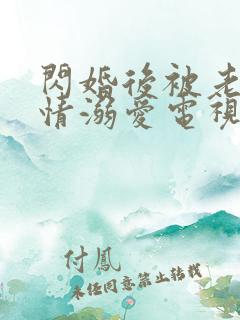 閃婚後被老
情溺愛電視
付鳳
未經同意禁止轉載